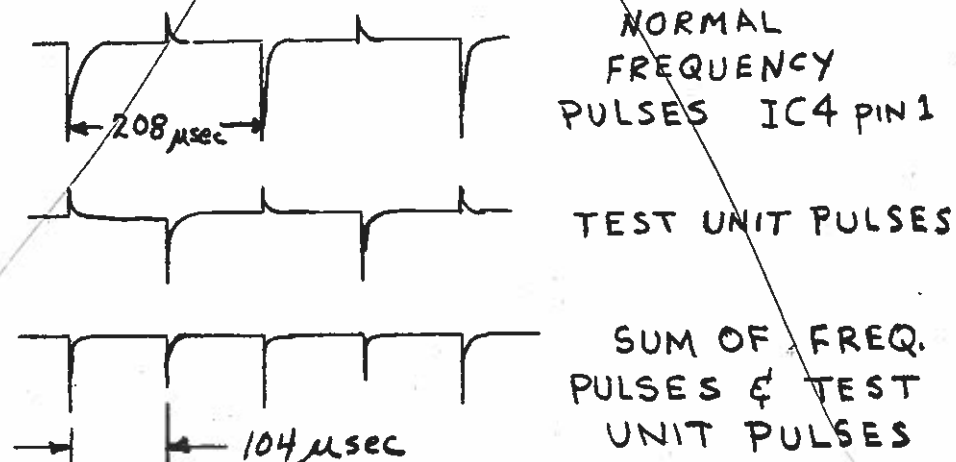 NORMAL
FREQUENCY
PULSES IC4 PIN 1
208 µsec
TEST UNIT PULSES
SUM OF FREQ.
PULSES & TEST
UNIT PULSES
104 µsec